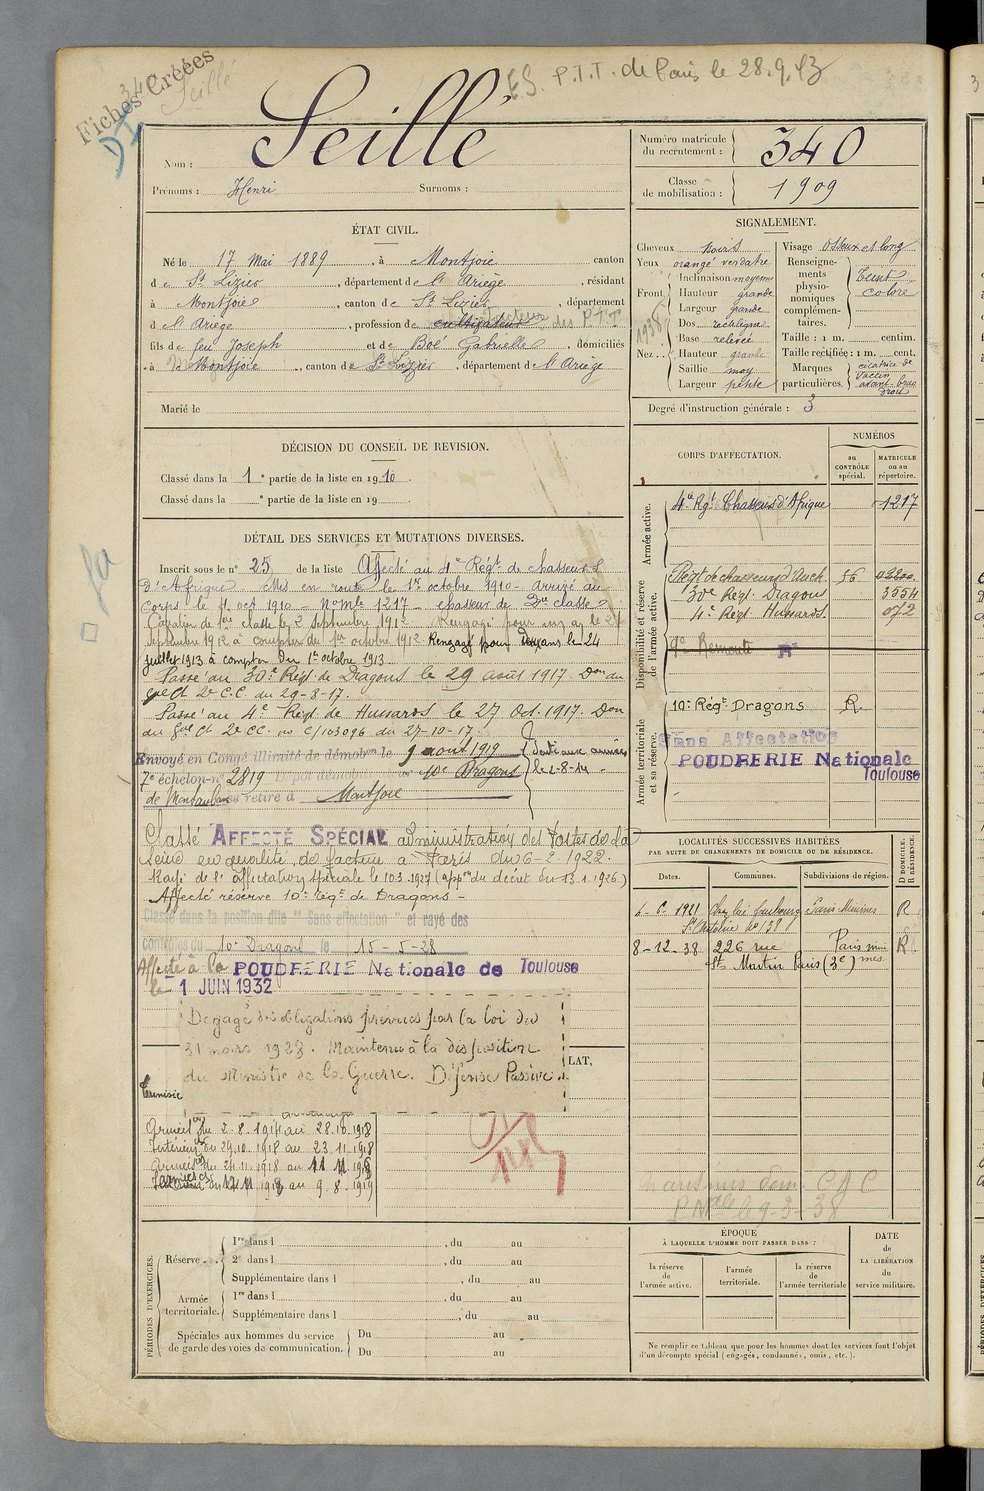 Fiches Créées
34
Seillé
DI
E.S. P.T.T. de Paris le 28.9.43
Nom : Seillé
Prénoms : Henri Surnoms :
Numéro matricule du recrutement : 340
Classe de mobilisation : 1909
ÉTAT CIVIL.
Né le 17 Mai 1889, à Montjoie canton
de St Lizier, département de l'Ariège, résidant
à Montjoie, canton de St Lizier, département
d l'Ariège, profession de cultivateur facteur des P.T.T
fils de feu Joseph et de Boé Gabrielle, domiciliés
à Montjoie, canton de St Lizier, département de l'Ariège
Marié le
SIGNALEMENT.
Cheveux noirs
Yeux orangé verdatre
Front Inclinaison moyenne
Hauteur grande
Largeur grande
Nez Dos rectiligne
Base relevée
Hauteur grande
Saillie moy
Largeur petite
1938
Visage osseux et long
Renseignements physionomiques complémentaires. Teint coloré
Taille : 1 m. centim.
Taille rectifiée : 1 m. cent.
Marques particulières. cicatrice de vaccin avant-bras droit
Degré d'instruction générale : 3
DÉCISION DU CONSEIL DE REVISION.
Classé dans la 1e partie de la liste en 1910.
Classé dans la e partie de la liste en 19
DÉTAIL DES SERVICES ET MUTATIONS DIVERSES.
Inscrit sous le n° 25 de la liste Affecté au 4e Régt de chasseurs
d'Afrique Mis en route le 1er octobre 1910 arrivé au
corps le 4 oct 1910 - No Mle 1217 - chasseur de 2me classe
Cavalier de 1ère classe le 2 septembre 1912 Rengagé pour un an le 21
septembre 1912 à compter du 1er octobre 1912 Rengagé pour ans le 24
juillet 1913 à compter du 1er octobre 1913
Passé au 30e Régt de Dragons le 29 août 1917 Don du
gal Ct 2e C.C. du 29-8-17.
Passé au 4e Régt de Hussards le 27 Oct. 1917. Don
du Gal Ct 2e CC. no C/103096 du 27-10-17.
Envoyé en Congé illimité de démobon le 9 août 1919
7e échelon n° 2819 Dépôt démobilisateur 10e Dragons
de Montauban se retire à Montjoie
Parti aux armées le 2-8-14
Classé AFFECTÉ SPÉCIAL administration des Postes de la
Seine en qualité de facteur à Paris du 6-2 1922.
Rayé de l'affectation spéciale le 10.3.1927 (appon du décret du 13.1.1926)
Affecté réserve 10e régt de Dragons -
Classé dans la position dite "Sans affectation" et rayé des
contrôles du 10e Dragons le 15-5-38
Affecté à la POUDRERIE Nationale de Toulouse
le 1 JUIN 1932
Dégagé des obligations prévues par la loi du
31 mars 1928. Maintenu à la disposition
du Ministre de la Guerre. Défense Passive.
LAT,
Tunisie
Armées du 2.8.1914 au 28.10.1918
Intérieur du 29.10.1918 au 23.11.1918
Armées du 24.11.1918 au
au 9.8.1919
CORPS D'AFFECTATION.
NUMÉROS
au CONTRÔLE spécial.
MATRICULE ou au répertoire.
Armée active.
4e Rgt Chasseurs d'Afrique 1217
Disponibilité et réserve de l'armée active.
Régt de chasseurs d'Auch 56
30e Régt Dragons 3554
4e Régt Hussards 072
Remonte
Armée territoriale et sa réserve.
10e Régt Dragons R.
Sans Affectation
POUDRERIE Nationale
Toulouse
LOCALITÉS SUCCESSIVES HABITÉES
PAR SUITE DE CHANGEMENTS DE DOMICILE OU DE RÉSIDENCE.
Dates. Communes. Subdivisions de région. D DOMICILE. R RÉSIDENCE.
1921 faubourg R
St Antoine no 138
8-12-38 226 rue Paris R
St Martin Paris (3e)
le 9-3-38
PÉRIODES D'EXERCICES.
Réserve 1re dans l , du au
2e dans l , du au
Supplémentaire dans l , du au
Armée territoriale. 1re dans l , du au
Supplémentaire dans l , du au
Spéciales aux hommes du service de garde des voies de communication. Du au
Du au
ÉPOQUE
À LAQUELLE L'HOMME DOIT PASSER DANS :
la réserve de l'armée active.
l'armée territoriale.
la réserve de l'armée territoriale
DATE de LA LIBÉRATION du service militaire.
Ne remplir ce tableau que pour les hommes dont les services font l'objet
d'un décompte spécial (engagés, condamnés, omis, etc.).